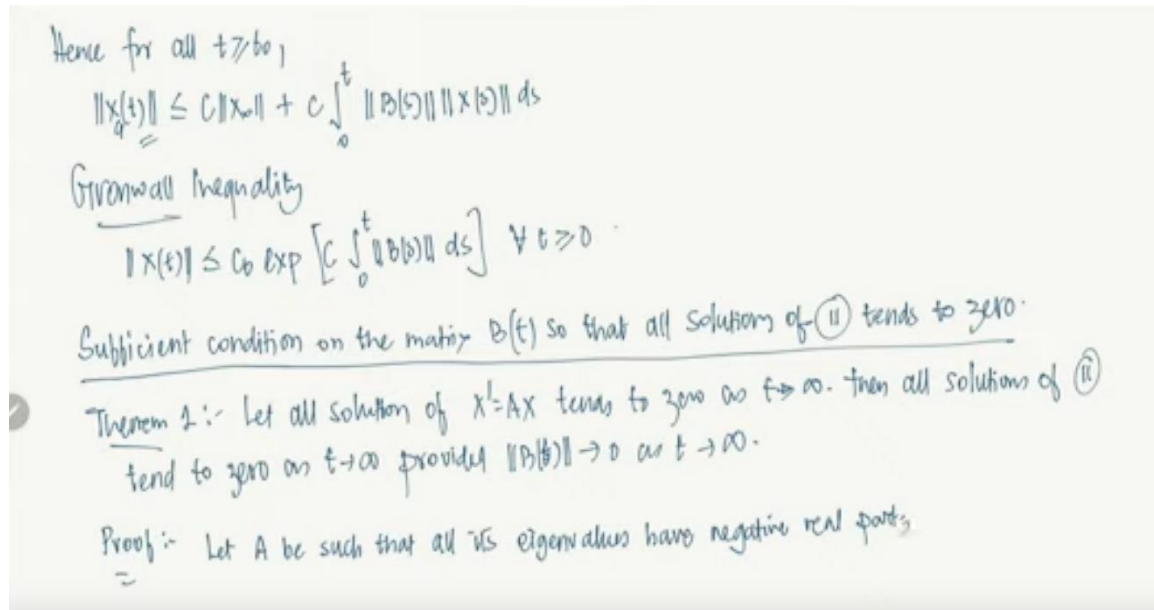 Hence for all t ≥ t₀,
||x(t)|| ≤ C||x₀|| + C ∫₀ᵗ ||B(s)|| ||x(s)|| ds
Gronwall Inequality
||x(t)|| ≤ C₀ exp [C ∫₀ᵗ ||B(s)|| ds] ∀ t ≥ 0
Sufficient condition on the matrix B(t) so that all solutions of (ii) tends to zero.
Theorem 1 :- Let all solution of x' = Ax tends to zero as t → ∞. then all solutions of (ii)
tend to zero as t → ∞ provided ||B(t)|| → 0 as t → ∞.
Proof :- Let A be such that all its eigenvalues have negative real parts,